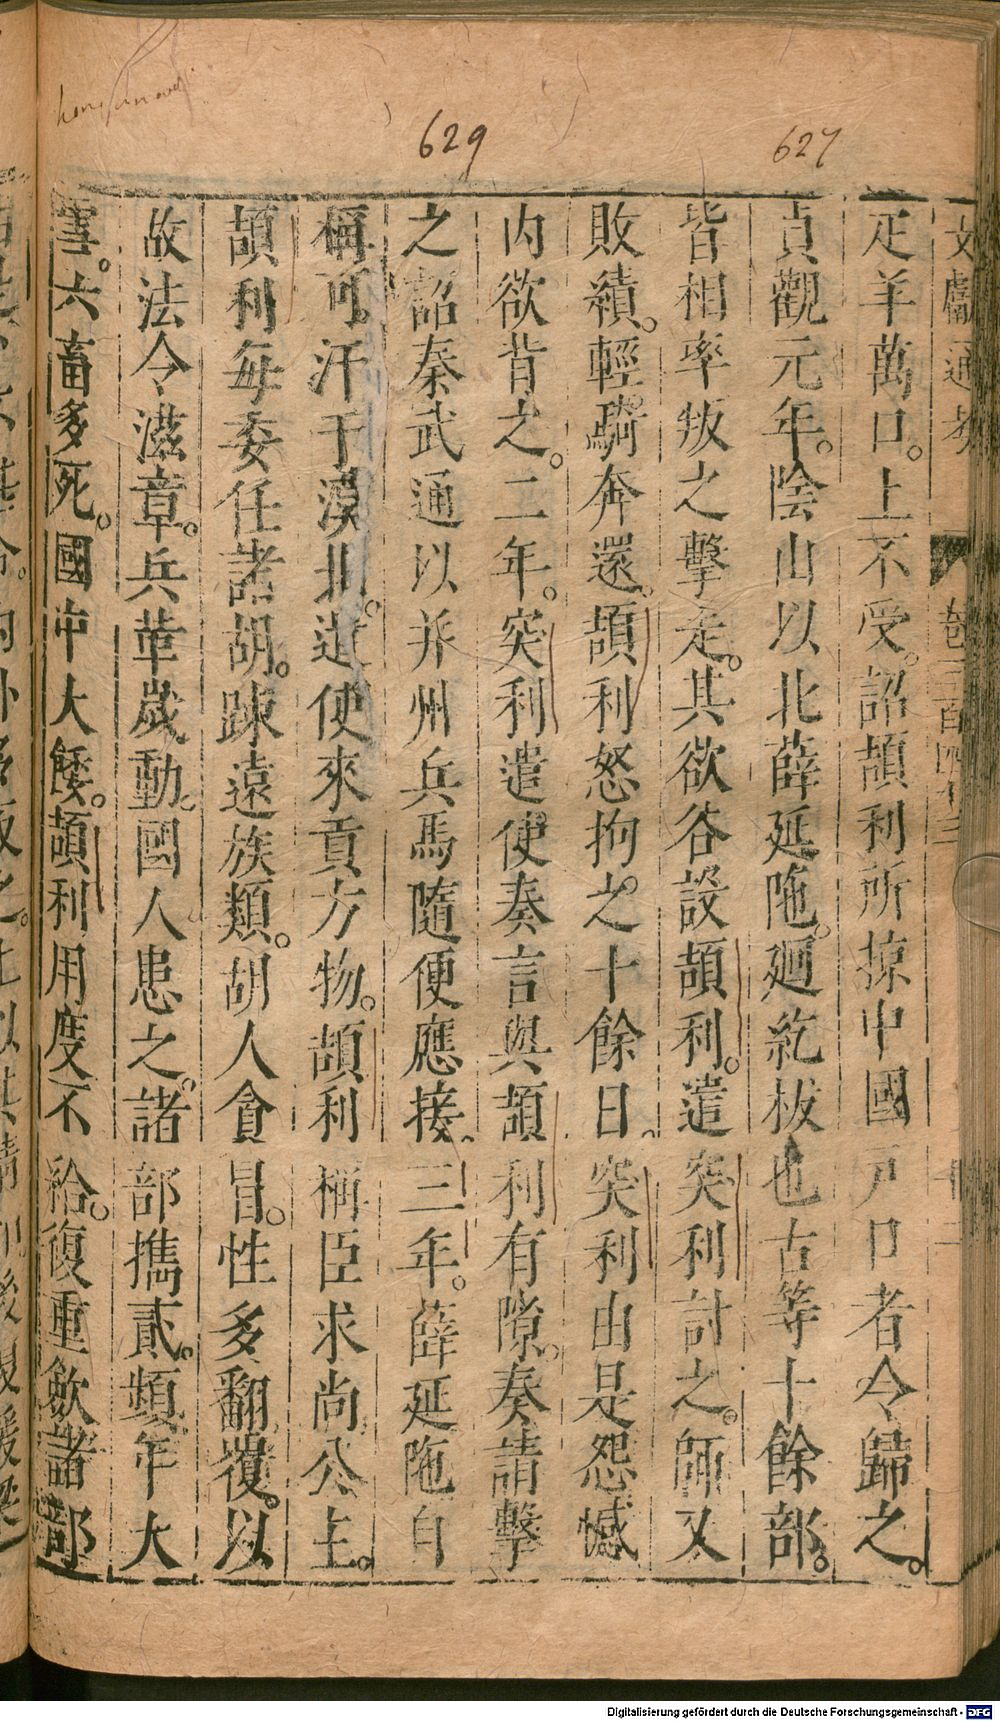 629
627
文獻通考 卷三百四十三 十二
疋羊萬口。上不受。詔頡利所掠中國戶口者令歸之。
貞觀元年。陰山以北薛延陁。廻紇拔也古等十餘部。
皆相率叛之擊走。其欲谷設頡利。遣突利討之。師又
敗績。輕騎奔還。頡利怒拘之十餘日。突利由是怨憾
內欲背之。二年。突利遣使奏言與頡利有隙。奏請擊
之詔秦武通以并州兵馬隨便應接。三年。薛延陁自
稱可汗于漠北。遣使來貢方物。頡利稱臣求尚公主。
頡利每委任諸胡。踈遠族類。胡人貪冒。性多翻覆。以
故法令滋章。兵革歲動。國人患之。諸部攜貳。頻年大
雪。六畜多死。國中大餧。頡利用度不給。復重歛諸部
Digitalisierung gefördert durch die Deutsche Forschungsgemeinschaft - DFG